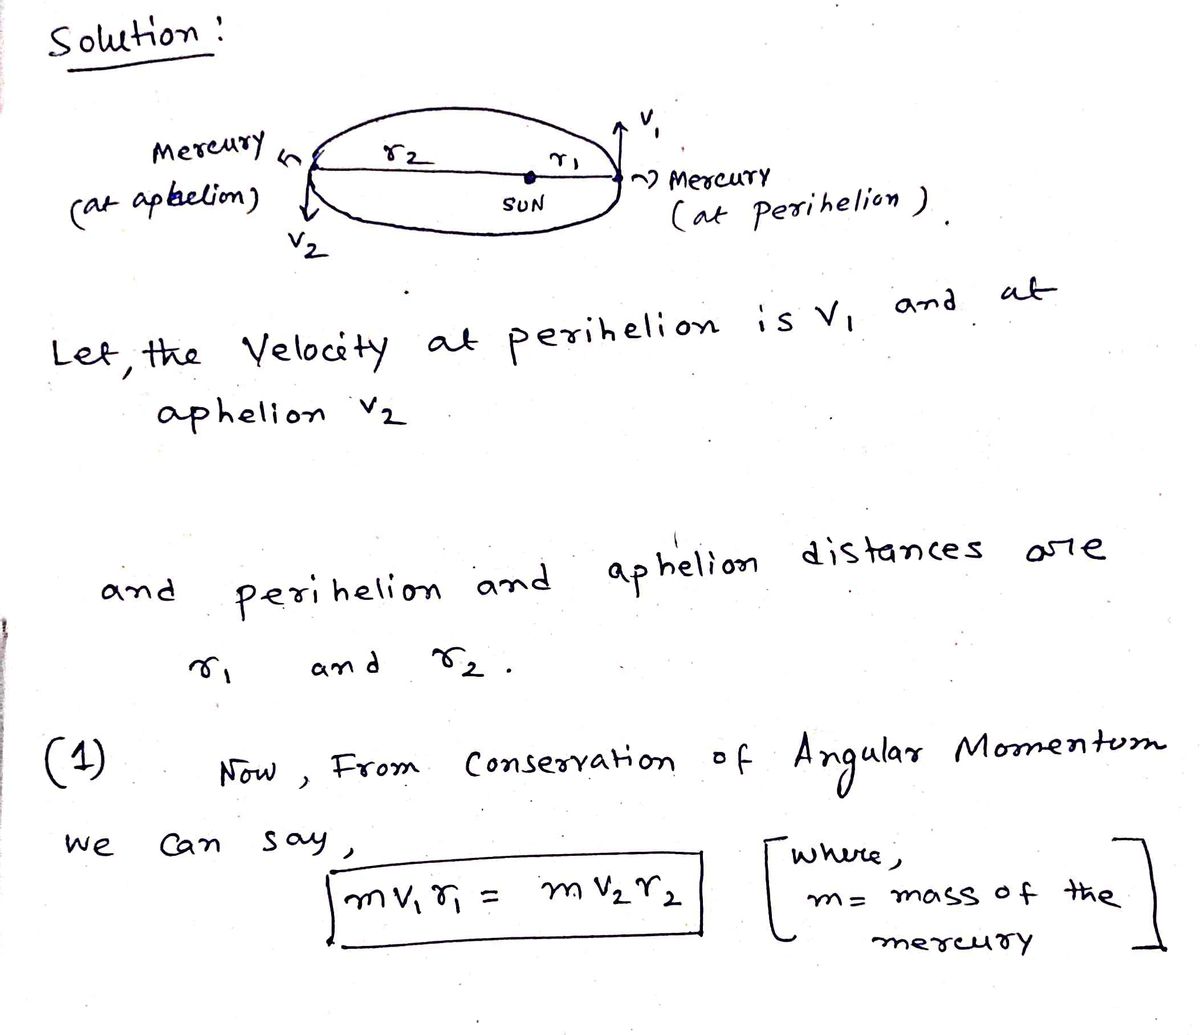 Solution :
Mercury
(at aphelion)
r2
r1
SUN
V1
V2
Mercury
(at Perihelion).
Let, the Velocity at perihelion is V1 and at
aphelion V2
and perihelion and aphelion distances are
r1 and r2.
(1) Now, From Conservation of Angular Momentum
we can say,
mV1r1 = mV2r2
[where,
m= mass of the
mercury]